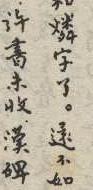 和憐字了。遠不如
許書未收漢碑